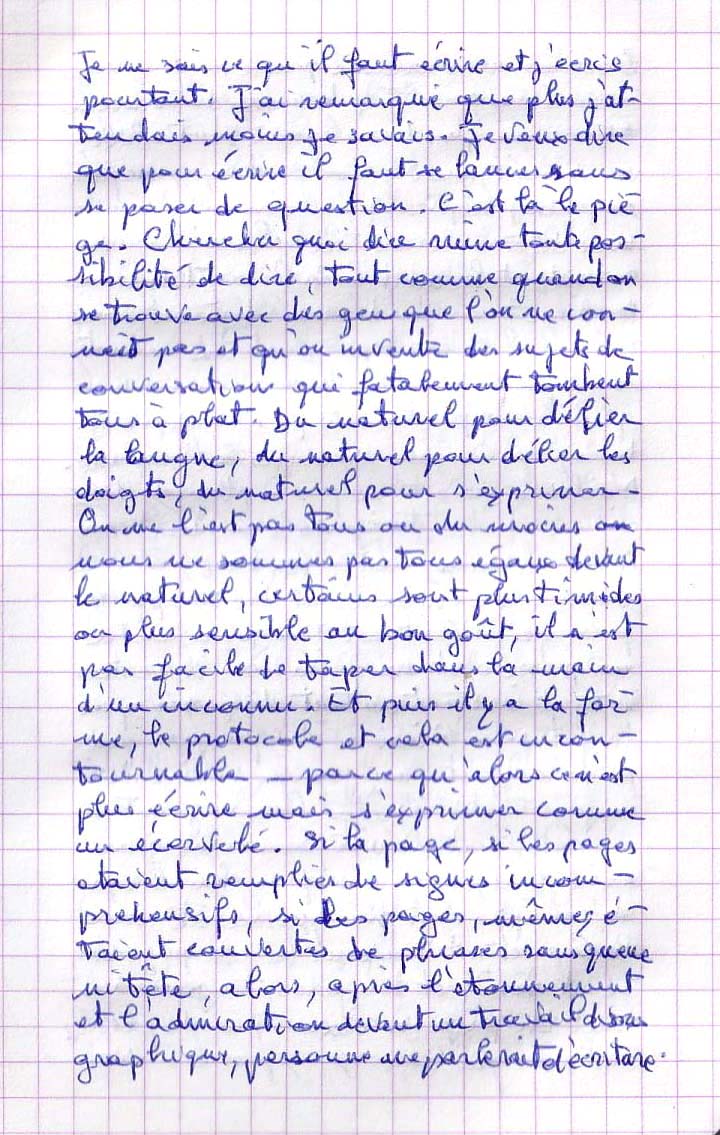 Je ne sais ce qu'il faut écrire et j'écris
pourtant. J'ai remarqué que plus j'at-
tendais moins je savais. Je veux dire
que pour écrire il faut se lancer sans
se poser de question. C'est là le piè
ge. Chercher quoi dire ruine toute pos-
sibilité de dire, tout comme quand on
se trouve avec des gens que l'on ne con-
nait pas et qu'on invente des sujets de
conversation qui fatalement tombent
tous à plat. Du naturel pour délier
la langue, du naturel pour délier les
doigts, du naturel pour s'exprimer.
On ne l'est pas tous ou du moins on
nous ne sommes pas tous égaux devant
le naturel, certains sont plus timides
ou plus sensible au bon goût, il n'est
pas facile de taper dans la main
d'un inconnu. Et puis il y a la for
me, le protocole et cela est incon-
tournable - parce qu'alors ce n'est
plus écrire mais s'exprimer comme
un écervelé. Si la page, si les pages
étaient remplies de signes incom-
prehensifs, si les pages, mêmes, é-
taient couvertes de phrases sans queue
ni tête, alors, après l'étonnement
et l'admiration devant un travail disons
graphique, personne ne parlerait d'écriture.